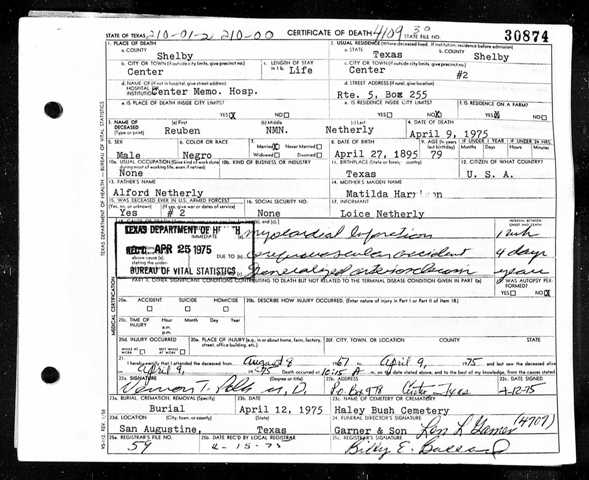 STATE OF TEXAS 210-01-2 210-00 CERTIFICATE OF DEATH 4109 STATE FILE NO. 30874
1. PLACE OF DEATH 2. USUAL RESIDENCE (Where deceased lived. If institution: residence before admission)
a. COUNTY Shelby a. STATE Texas b. COUNTY Shelby
b. CITY OR TOWN (If outside city limits, give precinct no.) Center c. LENGTH OF STAY in 1 b. Life c. CITY OR TOWN (If outside city limits, give precinct no.) Center #2
d. NAME OF (If not in hospital, give street address) HOSPITAL OR INSTITUTION Center Memo. Hosp. d. STREET ADDRESS (If rural, give location) Rte. 5, Box 255
e. IS PLACE OF DEATH INSIDE CITY LIMITS? YES X NO e. IS RESIDENCE INSIDE CITY LIMITS? YES NO X f. IS RESIDENCE ON A FARM? YES X NO
3. NAME OF DECEASED (Type or print) (a) First Reuben (b) Middle NMN. (c) Last Netherly 4. DATE OF DEATH April 9, 1975
5. SEX Male 6. COLOR OR RACE Negro 7. Married X Never Married Widowed Divorced 8. DATE OF BIRTH April 27, 1895 9. AGE (In years last birthday) 79 IF UNDER 1 YEAR IF UNDER 24 HRS.
10a. USUAL OCCUPATION (Give kind of work done during most of working life, even if retired) None 10b. KIND OF BUSINESS OR INDUSTRY 11. BIRTHPLACE (State or foreign country) Texas 12. CITIZEN OF WHAT COUNTRY? U. S. A.
13. FATHER'S NAME Alford Netherly 14. MOTHER'S MAIDEN NAME Matilda
15. WAS DECEASED EVER IN U.S. ARMED FORCES? (Yes, no, or unknown) Yes (If yes, give war or dates of service) # 2 16. SOCIAL SECURITY NO. None 17. INFORMANT Loice Netherly
18. CAUSE OF DEATH INTERVAL BETWEEN ONSET AND DEATH
TEXAS DEPARTMENT OF HEALTH
IMMEDIATE myocardial infarction 1 wk
REC'D APR 25 1975 DUE TO cerebrovascular accident 4 days
BUREAU OF VITAL STATISTICS DUE TO Generalized arteriosclerosis years
PART II. OTHER SIGNIFICANT CONDITIONS CONTRIBUTING TO DEATH BUT NOT RELATED TO THE TERMINAL DISEASE CONDITION GIVEN IN PART I(a) 19. WAS AUTOPSY PERFORMED? YES NO X
20a. ACCIDENT SUICIDE HOMICIDE 20b. DESCRIBE HOW INJURY OCCURRED. (Enter nature of injury in Part I or Part II of item 18.)
20c. TIME OF INJURY Hour Month Day Year a.m. p.m.
20d. INJURY OCCURRED WHILE AT WORK NOT WHILE AT WORK 20e. PLACE OF INJURY (e.g., in or about home, farm, factory, street, office building, etc.) 20f. CITY, TOWN, OR LOCATION COUNTY STATE
21. I hereby certify that I attended the deceased from August 8 1967 to April 9, 1975 and last saw the deceased alive
on April 9, 1975 Death occurred at 10:15 A m. on the date stated above, and to the best of my knowledge, from the causes stated.
22a. SIGNATURE (Degree or title) M.D. 22b. ADDRESS PO Box 978 Center Texas 22c. DATE SIGNED 4-12-75
23a. BURIAL, CREMATION, REMOVAL (Specify) Burial 23b. DATE April 12, 1975 23c. NAME OF CEMETERY OR CREMATORY Haley Bush Cemetery
23d. LOCATION (City, town, or county) (State) San Augustine, Texas 24. FUNERAL DIRECTOR'S SIGNATURE Garner & Son (4707)
25a. REGISTRAR'S FILE NO. 59 25b. DATE REC'D BY LOCAL REGISTRAR 4-15-75 25c. REGISTRAR'S SIGNATURE Billy E.
TEXAS DEPARTMENT OF HEALTH — BUREAU OF VITAL STATISTICS
MEDICAL CERTIFICATION